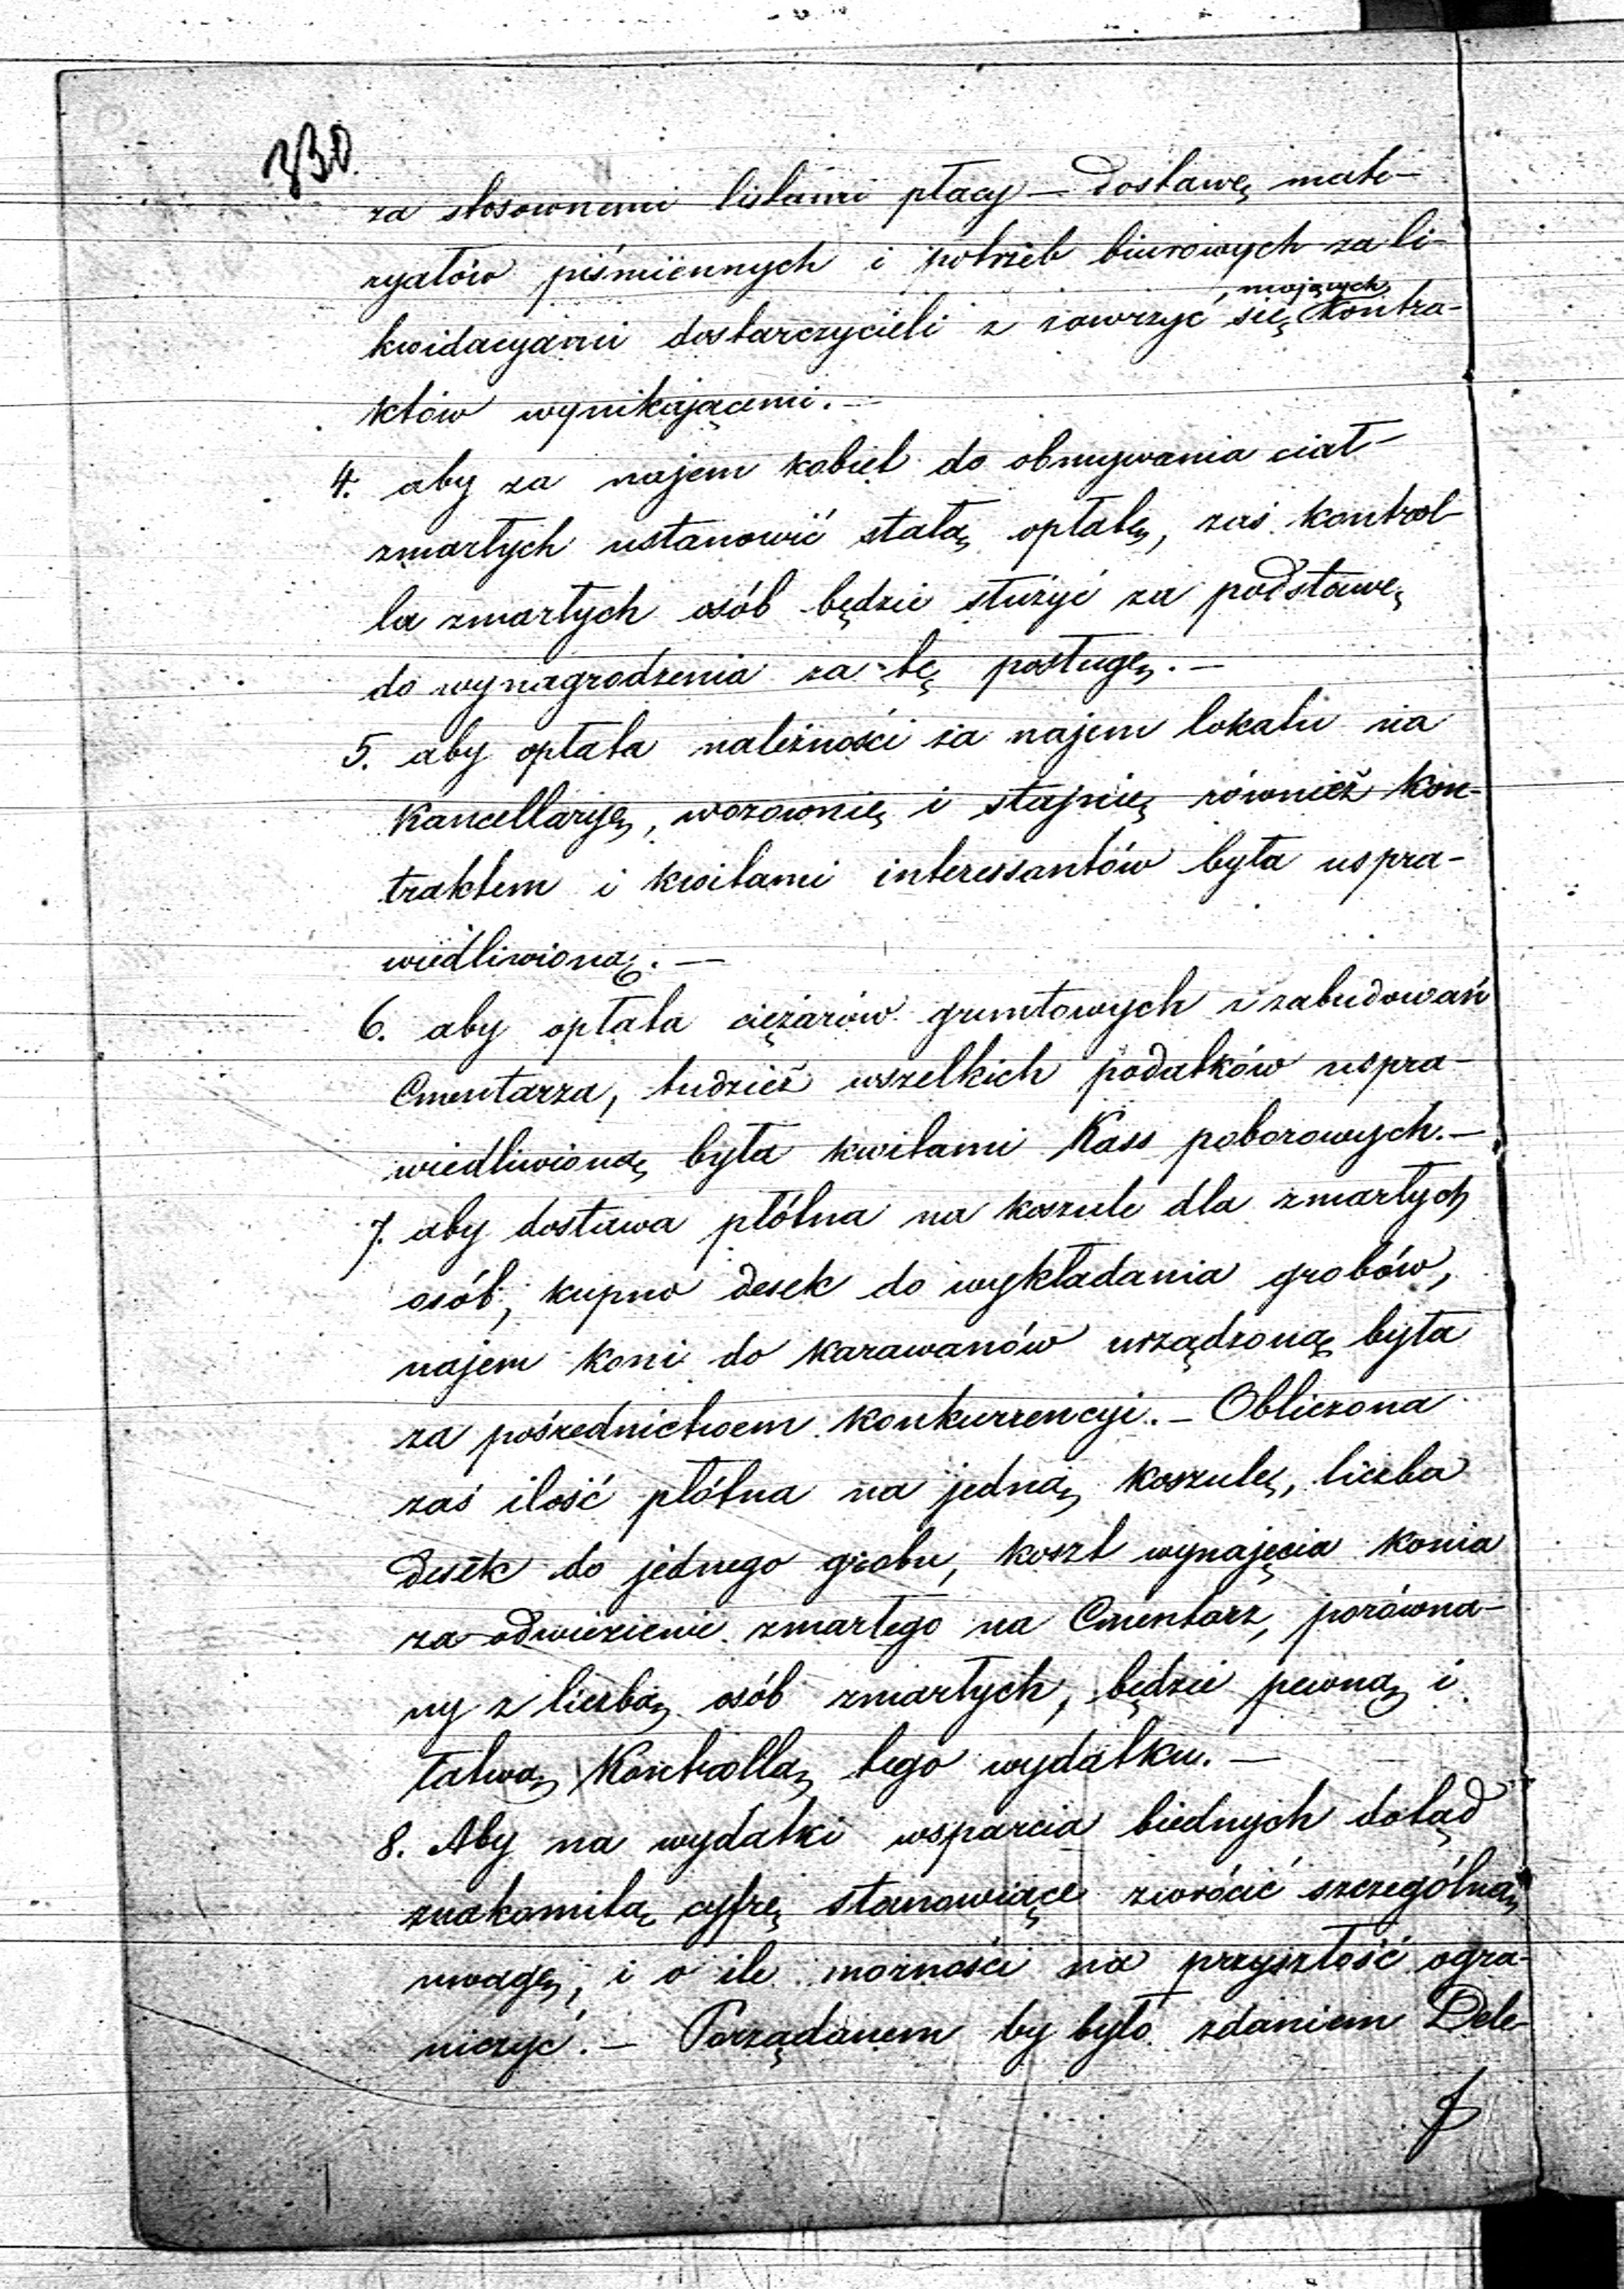 330.
za stosownemi listami płacy – dostawę mate-
ryałów piśmiennych i potrzeb biurowych za li-
kwidacyami dostarczycieli z zawrzyć się mających kontra-
któw wynikającemi. –
4. aby za najem kobiet do obmywania ciał
zmarłych ustanowić stałą opłatę, zaś kontrol-
la zmarłych osób będzie służyć za podstawę
do wynagrodzenia za tę posługę. –
5. aby opłata należności za najem lokalu na
Kancellaryę, wozownię i stajnię również kon-
traktem i kwitami interessantów była uspra-
wiedliwioną. –
6. aby opłata ciężarów gruntowych z zabudowań
Cmentarza, tudzież wszelkich podatków uspra-
wiedliwioną była kwitami Kass poborowych. –
7. aby dostawa płótna na koszule dla zmarłych
osób, kupno desek do wykładania grobów,
najem koni do karawanów urządzoną była
za pośrednictwem konkurrencyi. – Obliczona
zaś ilość płótna na jedną koszulę, liczba
desek do jednego grobu, koszt wynajęcia konia
za odwiezienie zmarłego na Cmentarz, porówna-
ny z liczbą osób zmarłych, będzie pewną i
łatwą Kontrollą tego wydatku. –
8. Aby na wydatki wsparcia biednych dotąd
znakomitą cyfrę stanowiące zwrócić szczególną
uwagę, i o ile możności na przyszłość ogra-
niczyć. – Porządanem by było zdaniem Dele-